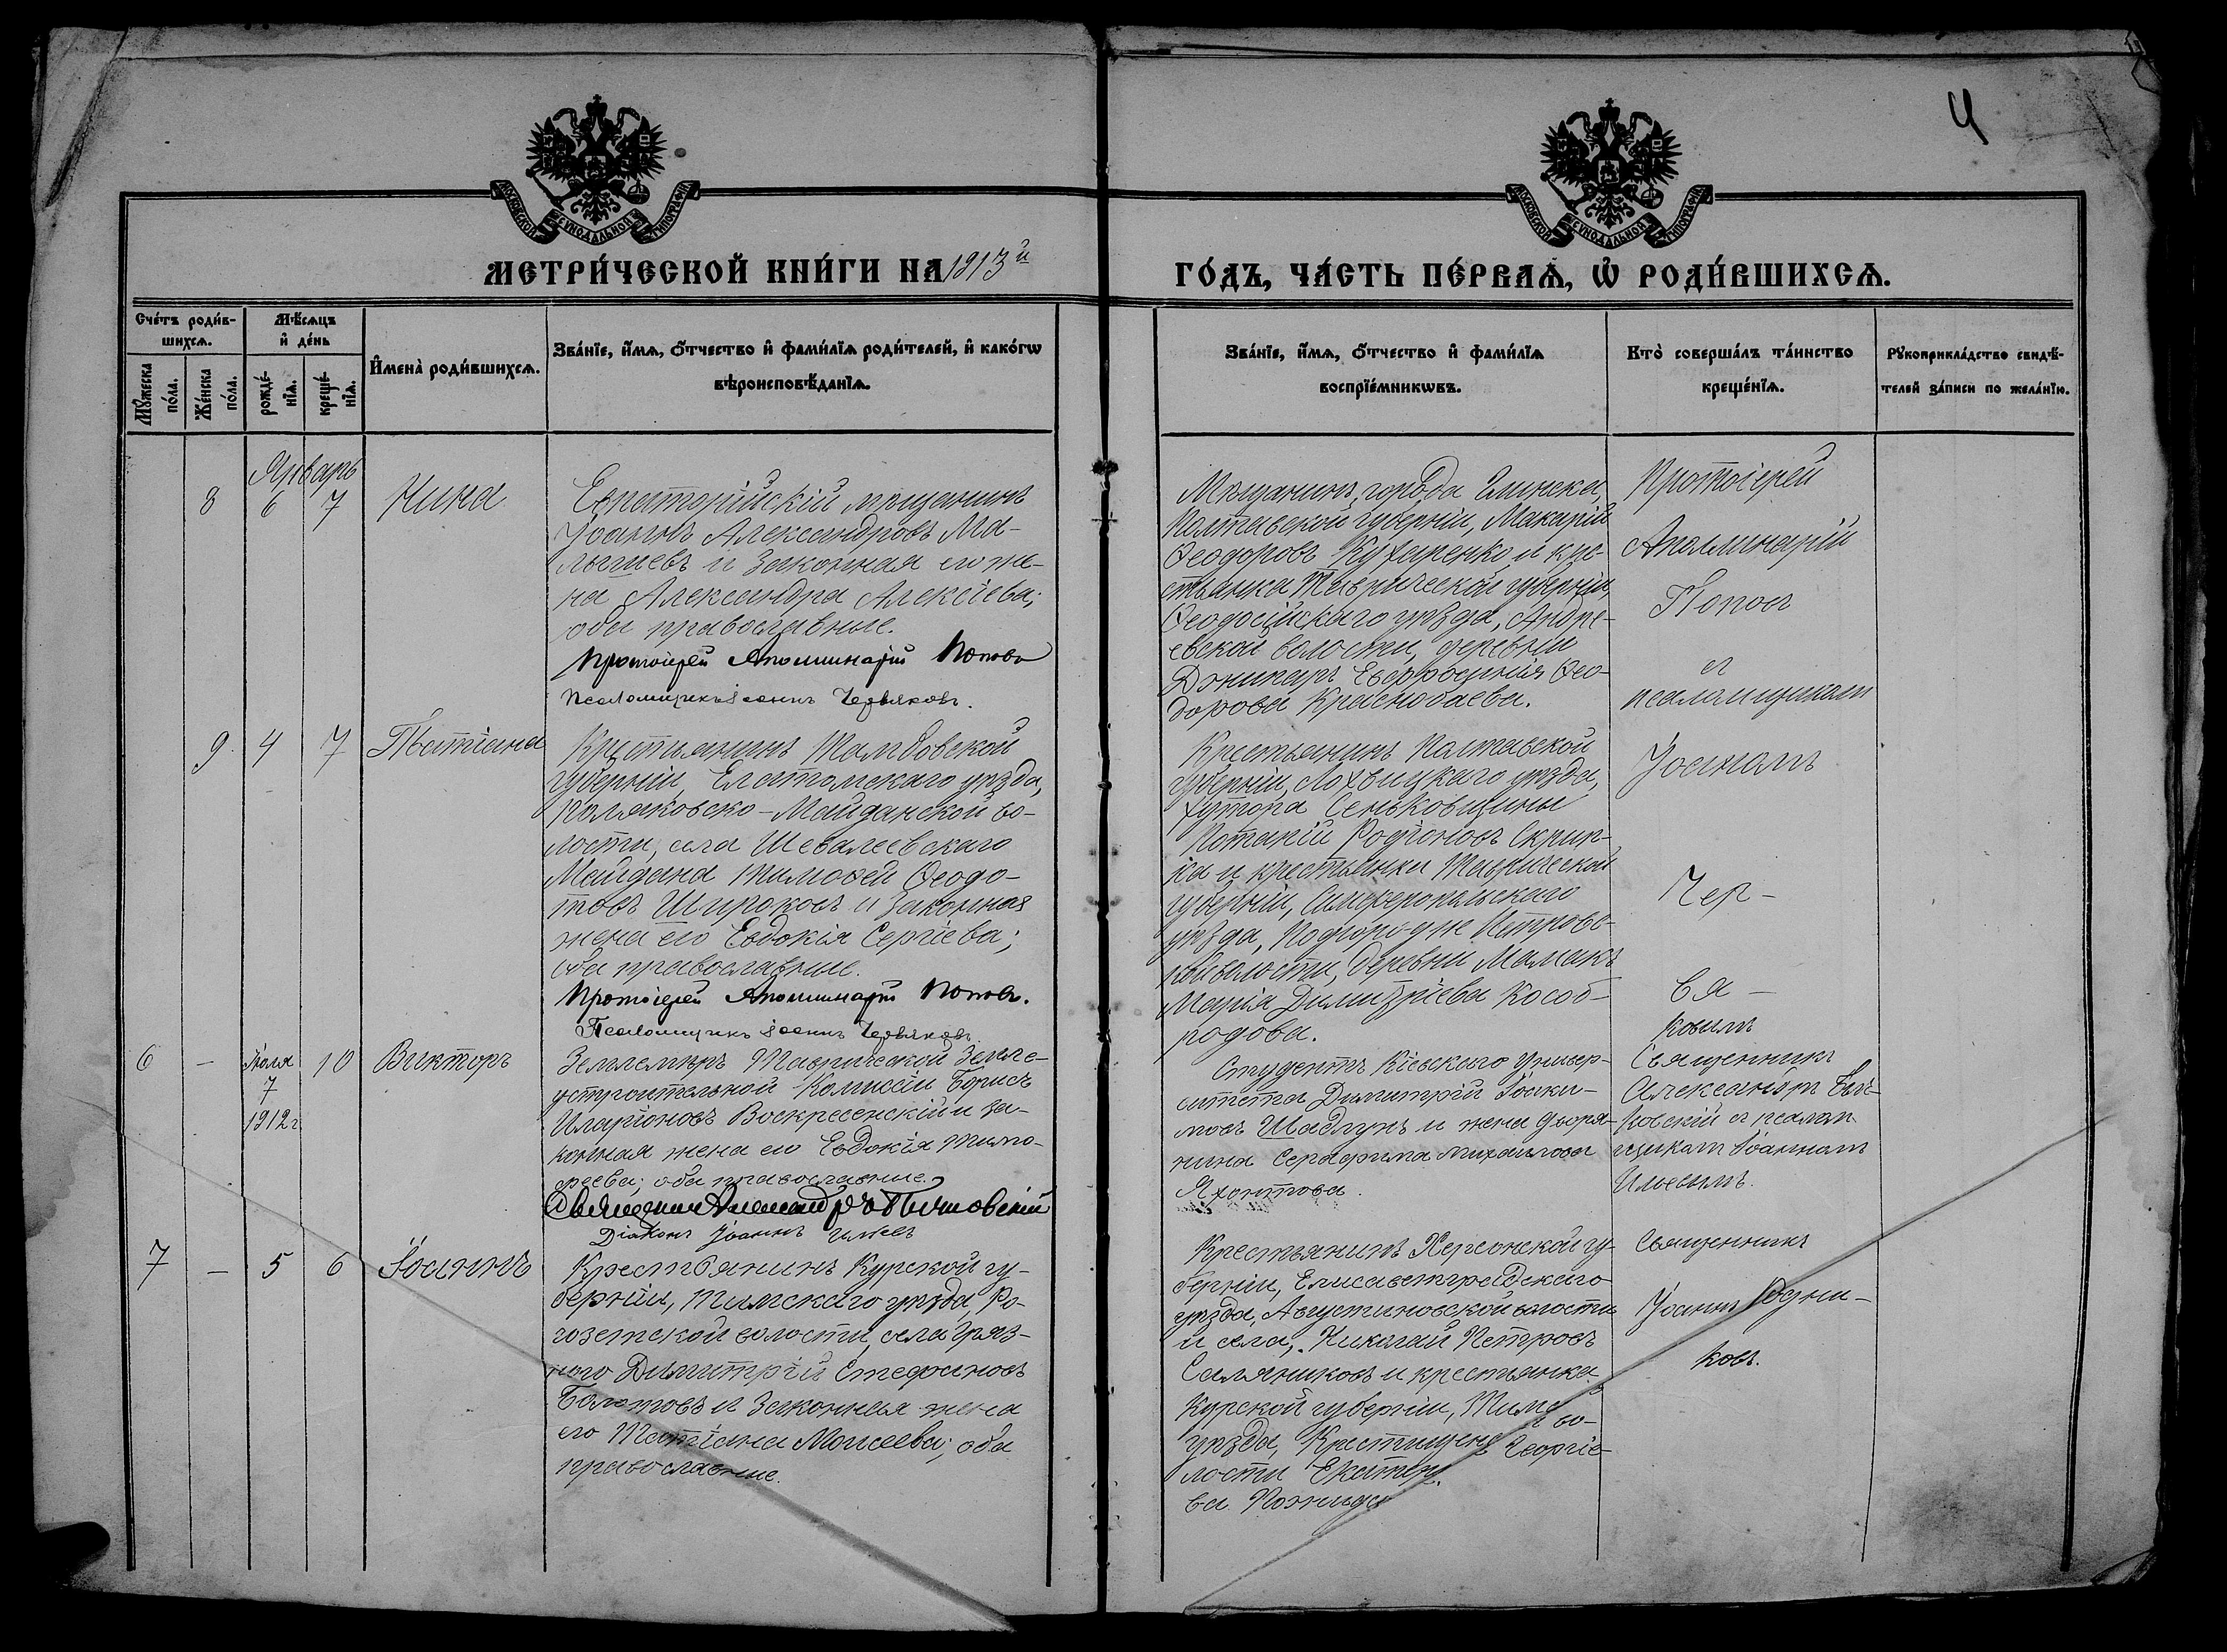 4
МОСКОВСКОЙ СѴНОДАЛЬНОЙ ТИПОГРАФІИ
МОСКОВСКОЙ СѴНОДАЛЬНОЙ ТИПОГРАФІИ
МЕТРИ́ЧЕСКОЙ КНИ́ГИ НА 1913й
ГО́ДЪ, ЧА́СТЬ ПЕ́РВАѦ, Ѿ РОДИ́ВШИХСѦ.
Сче́тъ роди́в-
шихсѧ.
Мѣ́сѧцъ
и҆ де́нь
Мꙋ́жеска
по́ла.
Же́нска
по́ла.
рожде́-
нїѧ.
креще́-
нїѧ.
И҆мена̀ роди́вшихсѧ.
Зва́нїе, и҆́мѧ, ѻ҆́тчество и҆ фами́лїѧ роди́телей, и҆ како́гѡ
вѣроисповѣ́данїѧ.
Зва́нїе, и҆́мѧ, ѻ҆́тчество и҆ фами́лїѧ
воспрїе́мникѡвъ.
Кто̀ соверша́лъ та́инство
креще́нїѧ.
Рꙋкоприкла́дство свидѣ́-
телей за́писи по жела́нїю.
Январь
8 6 7 Нина
Евпаторійскій мѣщанинъ
Іоаннъ Александровъ Ма-
лышевъ и законная его же-
на Александра Алексіева;
оба православные.
Протоіерей Аполлинарій Поповъ
Псаломщикъ Іоаннъ Червяковъ.
Мѣщанинъ города Глинска,
Полтавской губерніи, Макарій
Ѳеодоровъ Кухаренко и кре-
стьянка Таврической губерніи,
Ѳеодосійскаго уѣзда, Андре-
евской волости, деревни
Джикаръ Евфросинія Ѳео-
дорова Краснобаева.
Протоіерей
Аполлинарій
Попов
с
псаломщиком
9. 4 7 Татіана
Крестьянинъ Тамбовской
губерніи, Елатомскаго уѣзда,
Поляковско-Майданской во-
лости, села Шевалеевскаго
Майдана Тимоѳей Ѳеодо-
товъ Широковъ и законная
жена его Евдокія Сергіева;
оба православные.
Протоіерей Аполлинарій Поповъ.
Псаломщикъ Іоаннъ Червяковъ.
Крестьянинъ Полтавской
губерніи, Лохвицкаго уѣзда,
хутора Сеньковщины
Потапій Родіоновъ Скрип-
ка и крестьянка Таврической
губерніи, Симферопольскаго
уѣзда, Подгородне Петровс-
кой волости, деревни Мамакъ
Марія Димитріева Косоо-
родова.
Іоанномъ
Чер-
вя-
ковымъ
6 — Іюля 10 Викторъ
7
1912г.
Землемѣръ Таврической Земле-
устроительной Комиссіи Борисъ
Иларіоновъ Воскресенскій и за-
конная жена его Евдокія Тимо-
ѳеева; оба православные.
Священникъ Александръ
Діаконъ Іоаннъ Ильевъ
Студентъ Кіевскаго универ-
ситета Димитрій Іоаки-
мовъ Шадлунъ и жена дворя-
нина Серафима Михаилова
Яхонтова.
Священникъ
Александръ
и псалом-
щикомъ Іоанномъ
Ильевымъ.
7 — 5 6 Іоаннъ
Крестьянинъ Курской гу-
берніи, Тимскаго уѣзда, Ро-
гозетской волости, села Гряз-
ного Димитрій Стефановъ
Болотовъ и законная жена
его Татіана Моисеева; оба
православные.
Крестьянинъ Херсонской гу-
берніи, Елисаветградскаго
уѣзда, Августиновской волости
и села, Николай Петровъ
Саляниковъ и крестьянка
Курской губерніи, Тим
уѣзда, Крестищен во-
лости Екатер. Георгіе-
ва
Священникъ
Іоаннъ Родни-
ковъ.